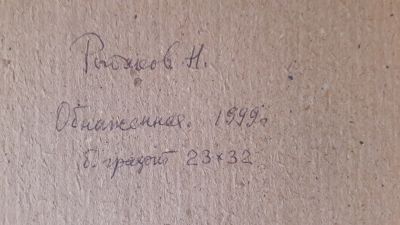 Рыбаков Н.
Обнаженная. 1999г
б. графит 23×32